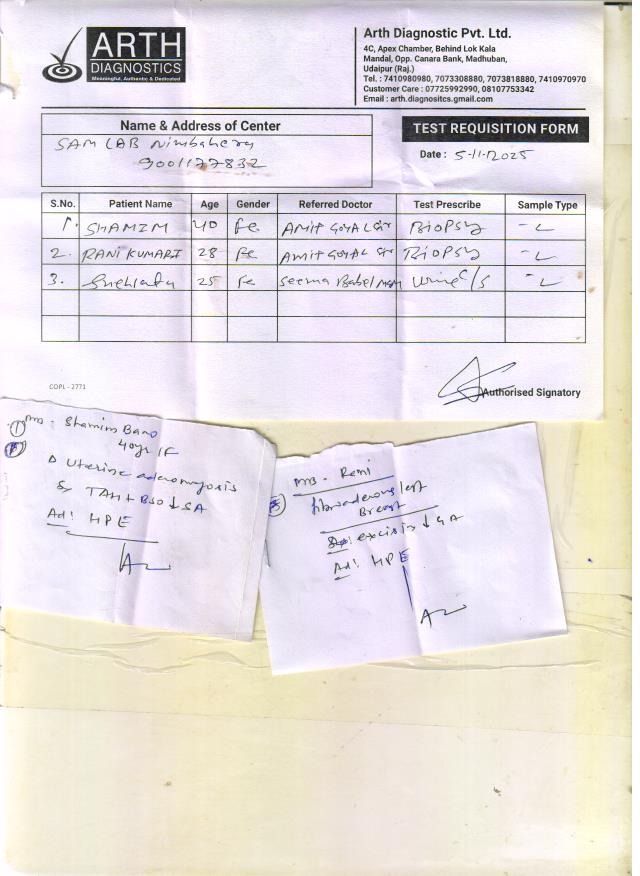 ARTH
DIAGNOSTICS
Meaningful, Authentic & Dedicated
Arth Diagnostic Pvt. Ltd.
4C, Apex Chamber, Behind Lok Kala
Mandal, Opp. Canara Bank, Madhuban,
Udaipur (Raj.)
Tel. : 7410980980, 7073308880, 7073818880, 7410970970
Customer Care : 07725992990, 08107753342
Email : arth.diagnositcs.gmail.com
Name & Address of Center
SAM LAB Nimbahera
9001177832
TEST REQUISITION FORM
Date : 5-11-2025
S.No. Patient Name Age Gender Referred Doctor Test Prescribe Sample Type
1. SHAMIM 40 Fe AMIT GOYAL Sir BIOPSY - L
2. RANI KUMARI 28 Fe AMIT GOYAL Sir BIOPSY - L
3. Snehlata 25 Fe Seema Babel Mam Urine C/S - L
COPL - 2771
Authorised Signatory
1 Mrs. Shamim Bano
40yr/F
Δ Uterine adenomyosis
TAH + BSO ↓ SA
Ad: HPE
Mrs. Rani
fibroadenoma left
Breast
excision ↓ GA
Ad: HPE